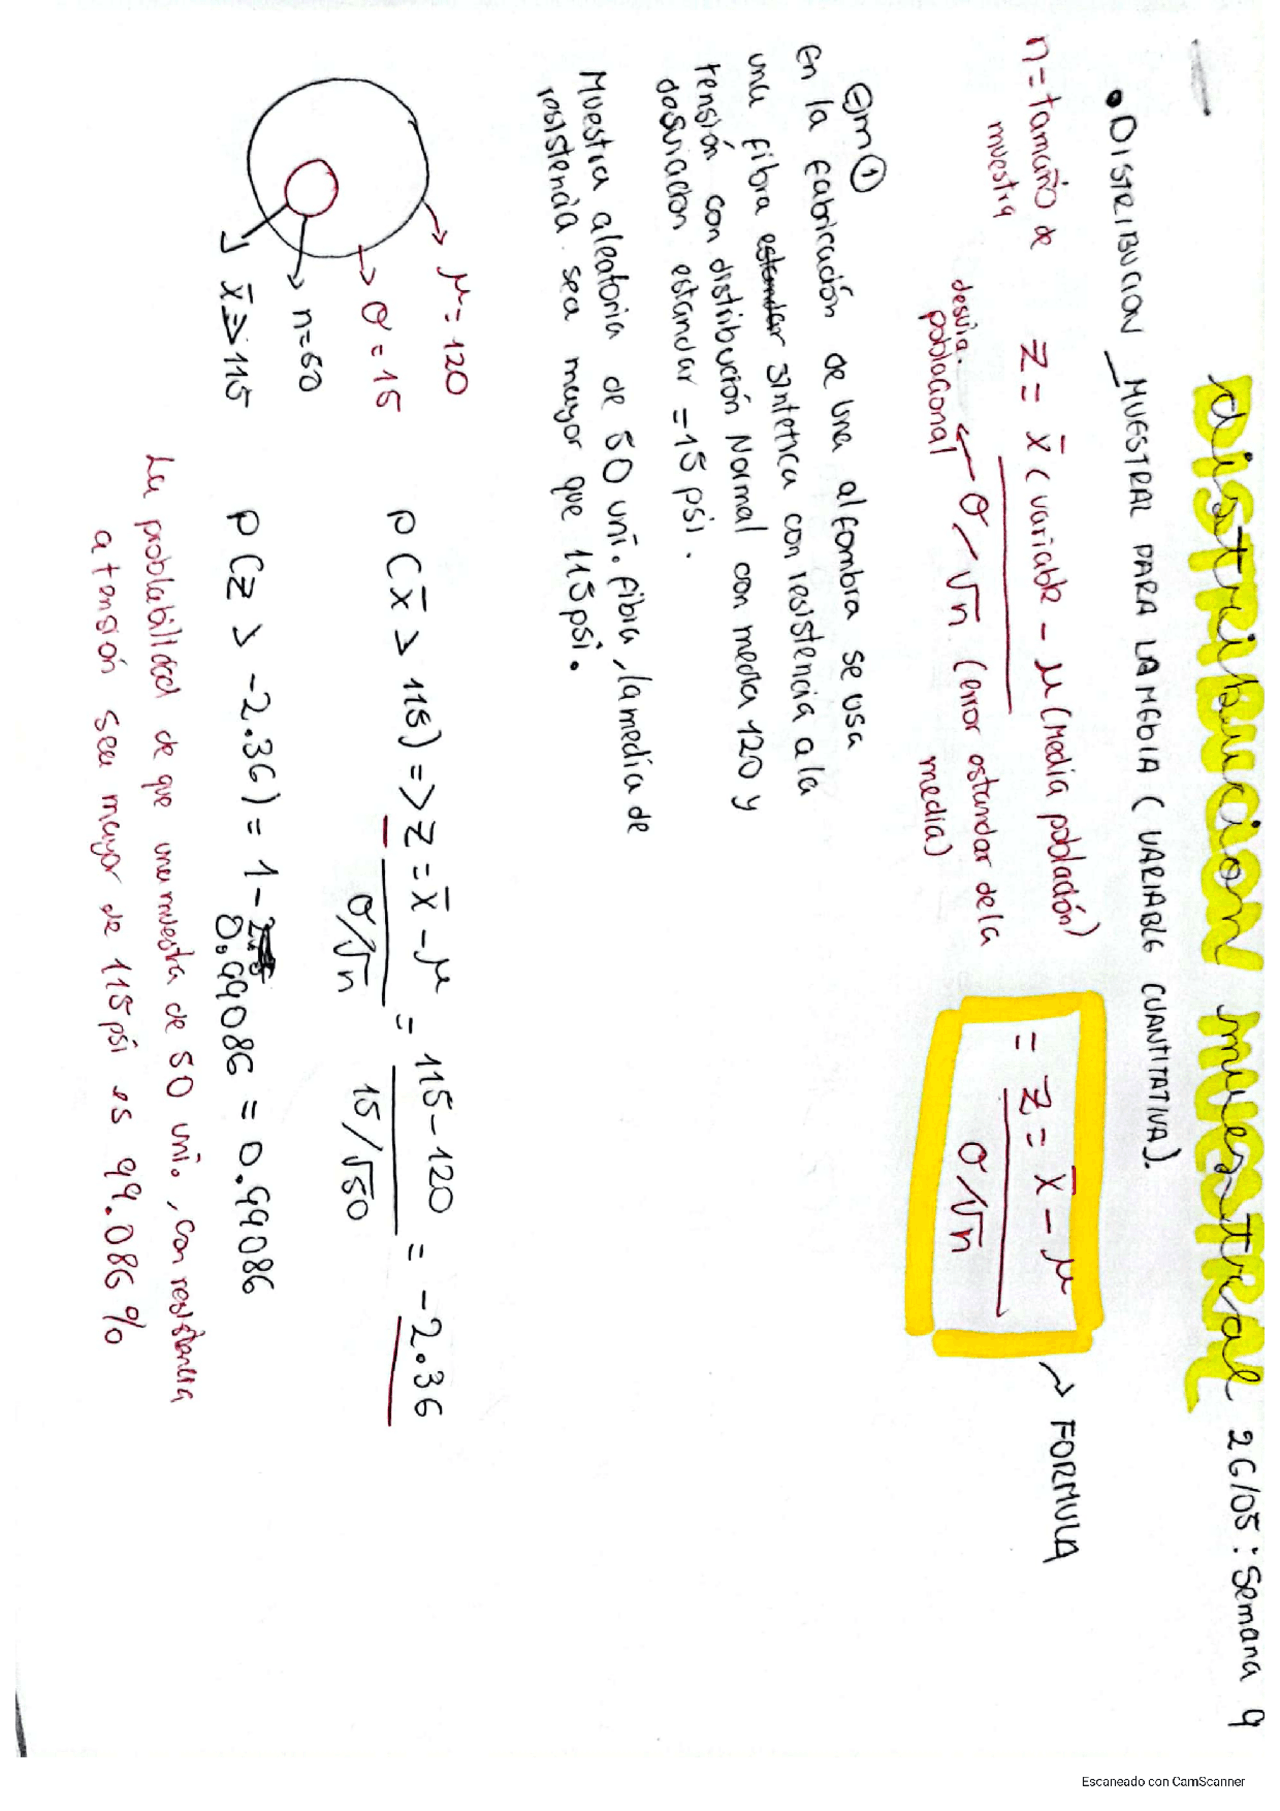 distribucion muestral 26/05: Semana 9
DISTRIBUCION MUESTRAL PARA LA MEDIA (VARIABLE CUANTITATIVA).
n = tamaño de muestra
z = x̄ (variable - μ (Media población)
desvia. poblacional ← σ/√n (error estandar de la media)
= z = x̄ - μ
σ√n
→ FORMULA
Ejm ①
En la fabricación de una alfombra se usa
una fibra sintetica con resistencia a la
tensión con distribución Normal con media 120 y
desviacion estandar = 15 psi.
Muestra aleatoria de 50 uni. fibra, la media de
resistencia sea mayor que 115 psi.
μ = 120
σ = 15
n = 50
x̄ => 115
P (x̄ > 115) => z = x̄ - μ = 115 - 120 = -2.36
σ/√n 15/√50
P (z > -2.36) = 1 -
0.99086 = 0.99086
La probabilidad de que una muestra de 50 uni., con resistencia
a tensión sea mayor de 115 psi es 99.086 %
Escaneado con CamScanner